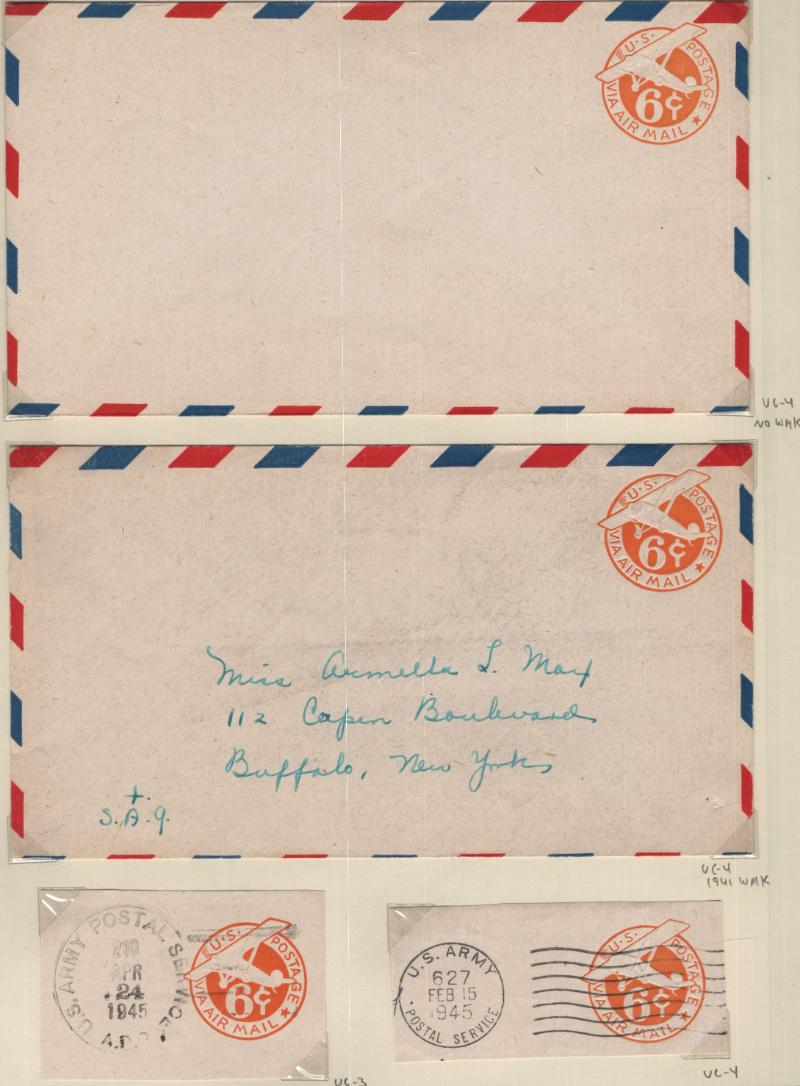 U.S. POSTAGE
6¢
VIA AIR MAIL
UC-4
NO WMK
U.S. POSTAGE
6¢
VIA AIR MAIL
Miss Armella L. May
112 Capen Boulevard
Buffalo, New York
+.
S.A.G.
UC-4
1941 WMK
U.S. ARMY POSTAL SERVICE
APR
24
1945
A.P.O.
U.S. POSTAGE
6¢
VIA AIR MAIL
UC-3
U.S. ARMY
627
FEB 15
1945
POSTAL SERVICE
U.S. POSTAGE
6¢
VIA AIR MAIL
UC-4